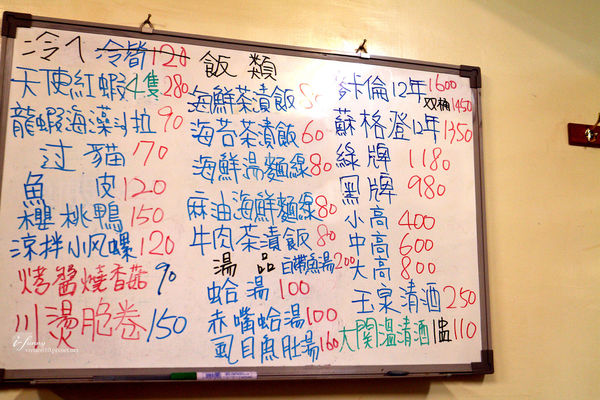 冷ㄟ 冷皆120
天使紅蝦4隻280
龍蝦海藻沙拉 90
过貓 70
魚皮120
櫻桃鴨150
涼拌小风螺120
烤醬燒香菇 90
川燙脆卷150
飯類
海鮮茶漬飯
海苔茶漬飯60
海鮮湯麵線80
麻油海鮮麵線80
牛肉茶漬飯80
湯品
白帶魚湯200
蛤湯100
赤嘴蛤湯100
虱目魚肚湯160
卡倫12年1600
双桶1450
蘇格登12年1350
綠牌 1180
黑牌 980
小高 400
中高 600
大高 800
玉泉清酒250
大関溫清酒1壺110